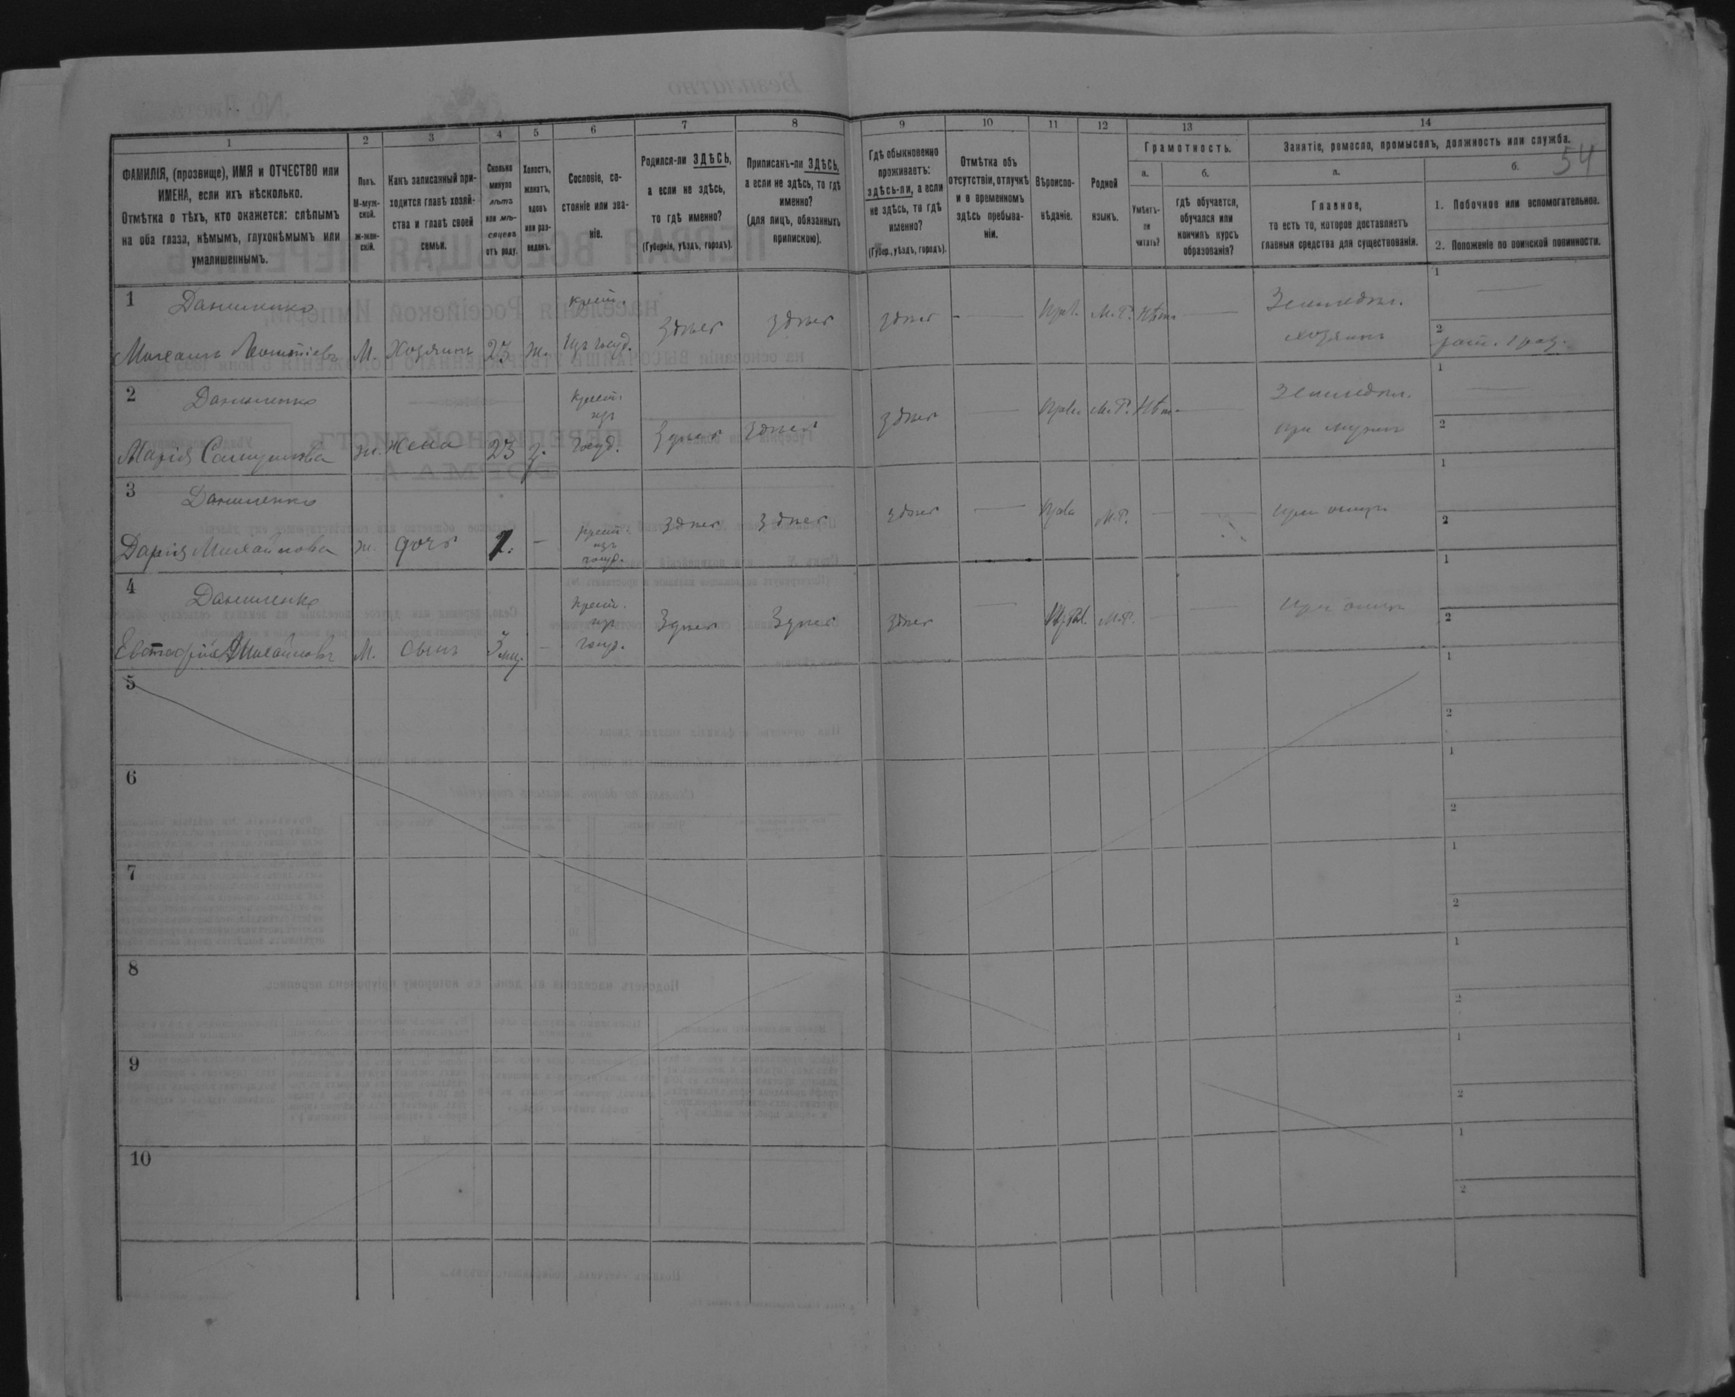 54
1 2 3 4 5 6 7 8 9 10 11 12 13 14
ФАМИЛІЯ, (прозвище), ИМЯ и ОТЧЕСТВО или
ИМЕНА, если ихъ нѣсколько.
Отмѣтка о тѣхъ, кто окажется: слѣпымъ
на оба глаза, нѣмымъ, глухонѣмымъ или
умалишеннымъ.
Полъ.
М-муж-
ской.
Ж-жен-
скій.
Какъ записанный при-
ходится главѣ хозяй-
ства и главѣ своей
семьи.
Сколько
минуло
лѣтъ
или мѣ-
сяцевъ
отъ роду.
Холостъ,
женатъ,
вдовъ
или раз-
веденъ.
Сословіе, со-
стояніе или зва-
ніе.
Родился-ли ЗДѢСЬ,
а если не здѣсь,
то гдѣ именно?
(Губернія, уѣздъ, городъ).
Приписанъ-ли ЗДѢСЬ,
а если не здѣсь, то гдѣ
именно?
(для лицъ, обязанныхъ
припискою).
Гдѣ обыкновенно
проживаетъ:
здѣсь-ли, а если
не здѣсь, то гдѣ
именно?
(Губер., уѣздъ, городъ).
Отмѣтка объ
отсутствіи, отлучкѣ
и о временномъ
здѣсь пребыва-
ніи.
Вѣроиспо-
вѣданіе.
Родной
языкъ.
Грамотность.
а.
Умѣетъ-
ли
читать?
б.
гдѣ обучается,
обучался или
кончилъ курсъ
образованія?
Занятіе, ремесло, промыселъ, должность или служба.
а.
Главное,
то есть то, которое доставляетъ
главныя средства для существованія.
б.
1. Побочное или вспомогательное.
2. Положеніе по воинской повинности.
1 Даниленко крест. здѣсь здѣсь здѣсь — Прав. М.Р. Нѣт. — Земледѣл. 1 —
Михаилъ М. Хозяинъ 23 ж. Изъ госуд. хозяинъ 2
2 Даниленко — Крест. изъ здѣсь — Прав. М.Р. Нѣт. — Земледѣл. 1 —
Марія ж. Жена 23 з. госуд. здѣсь здѣсь при мужѣ 2
3 Даниленко здѣсь здѣсь здѣсь — Прав. М.Р. — — при отцѣ 1
Дарія Михайлова ж. дочь 1. — Крест. изъ госуд. 2
4 Даниленко Крест. изъ здѣсь здѣсь здѣсь — Прав. М.Р. — — при отцѣ 1
Михайловъ М. сынъ — госуд. 2
5 1
2
6 1
2
7 1
2
8 1
2
9 1
2
10 1
2